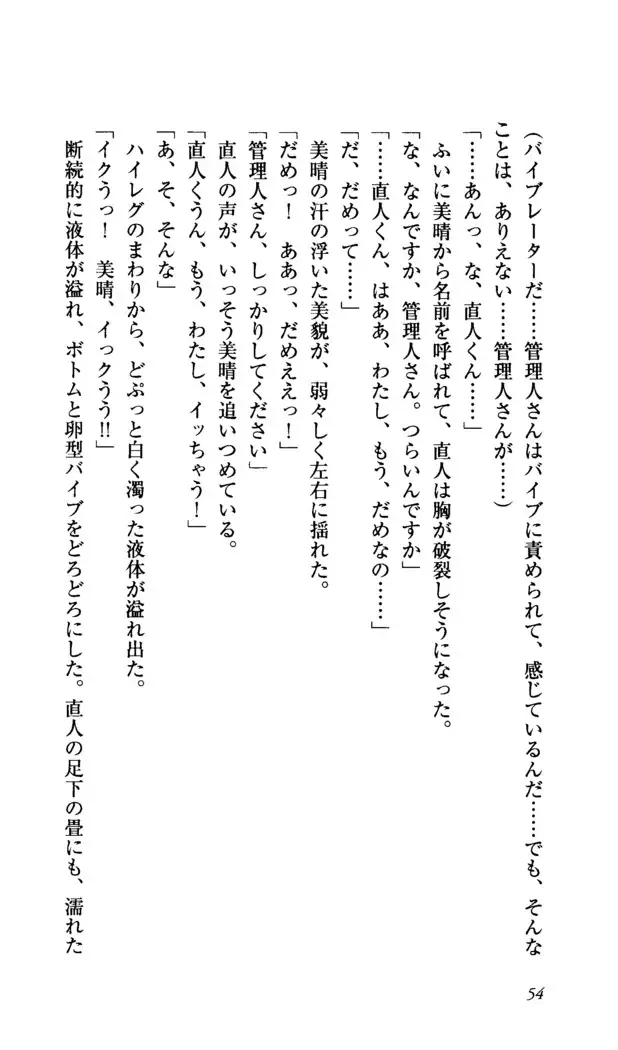 （バイブレーターだ……管理人さんはバイブに責められて、感じているんだ……でも、そんな
ことは、ありえない……管理人さんが……）
「……あんっ、な、直人くん……」
ふいに美晴から名前を呼ばれて、直人は胸が破裂しそうになった。
「な、なんですか、管理人さん。つらいんですか」
「……直人くん、はああ、わたし、もう、だめなの……」
「だ、だめって……」
美晴の汗の浮いた美貌が、弱々しく左右に揺れた。
「だめっ！　ああっ、だめええっ！」
「管理人さん、しっかりしてください」
直人の声が、いっそう美晴を追いつめている。
「直人くうん、もう、わたし、イッちゃう！」
「あ、そ、そんな」
ハイレグのまわりから、どぷっと白く濁った液体が溢れ出た。
「イクうっ！　美晴、イックうう!!」
断続的に液体が溢れ、ボトムと卵型バイブをどろどろにした。直人の足下の畳にも、濡れた
54